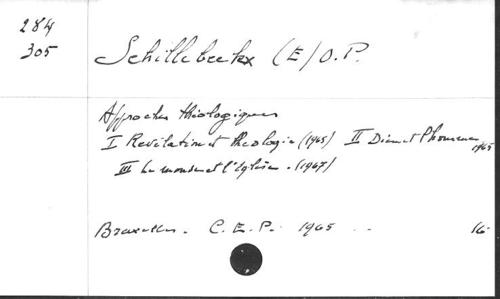 284
305
Schillebeeckx (E) O.P.
Approches théologiques
I Révélation et théologie (1965) II Dieu et l'homme 1965
III Le monde et l'Eglise. (1967)
Bruxelles. C.E.P. 1965 .. 16